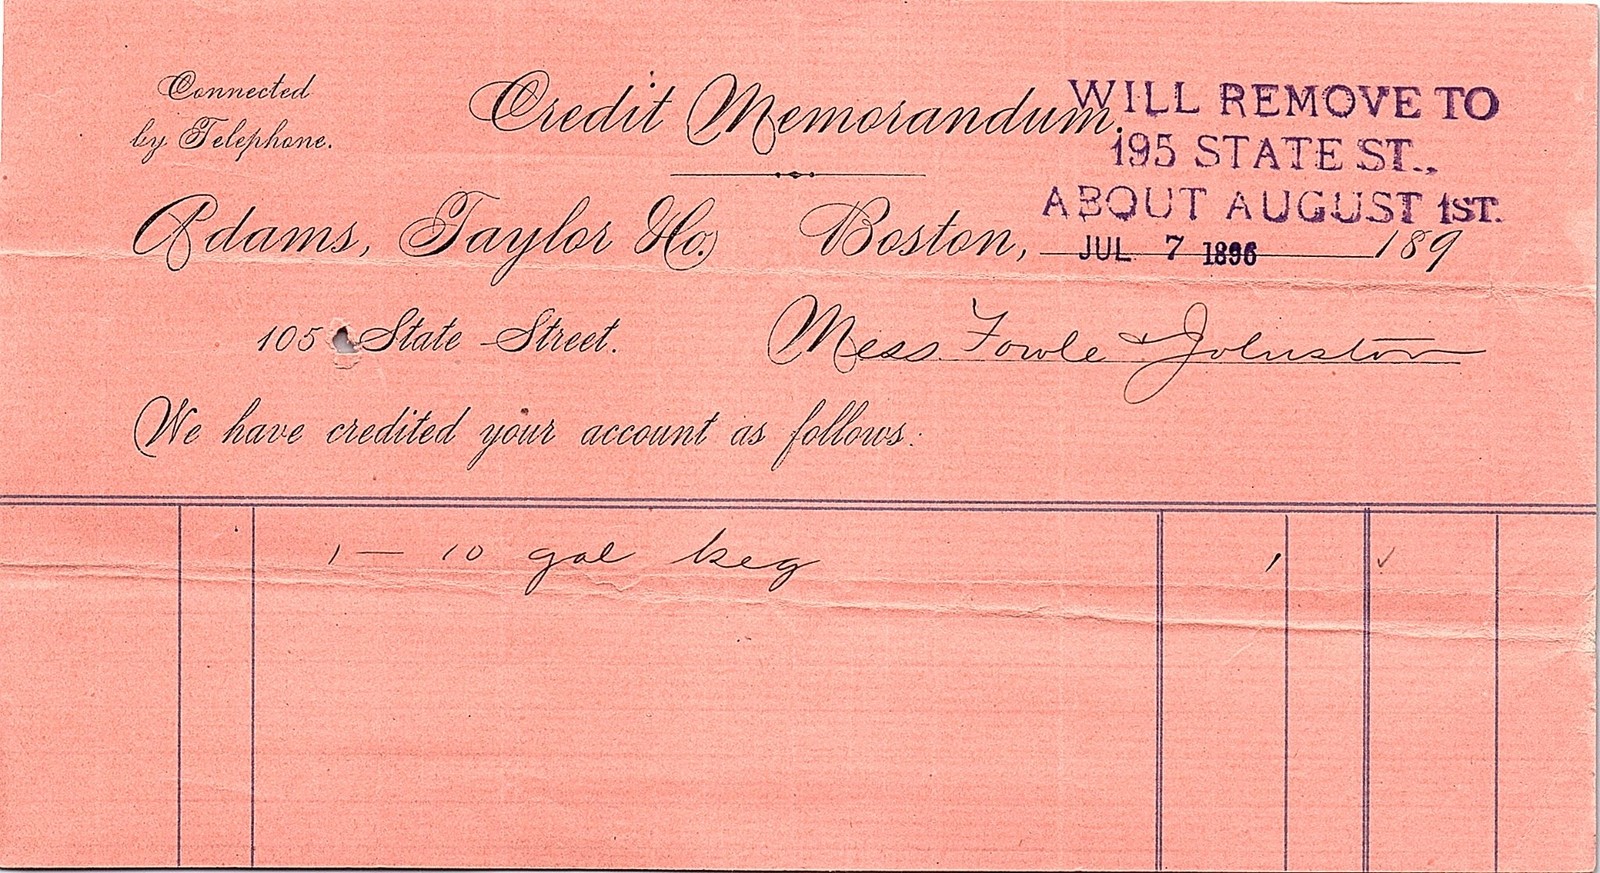 Connected
by Telephone.
Credit Memorandum.
WILL REMOVE TO
195 STATE ST.,
ABOUT AUGUST 1ST.
Adams, Taylor & Co.
Boston, JUL 7 1896 189
105 State Street.
Mess. Fowle & Johnston
We have credited your account as follows:
1 — 10 gal keg 1 ✓